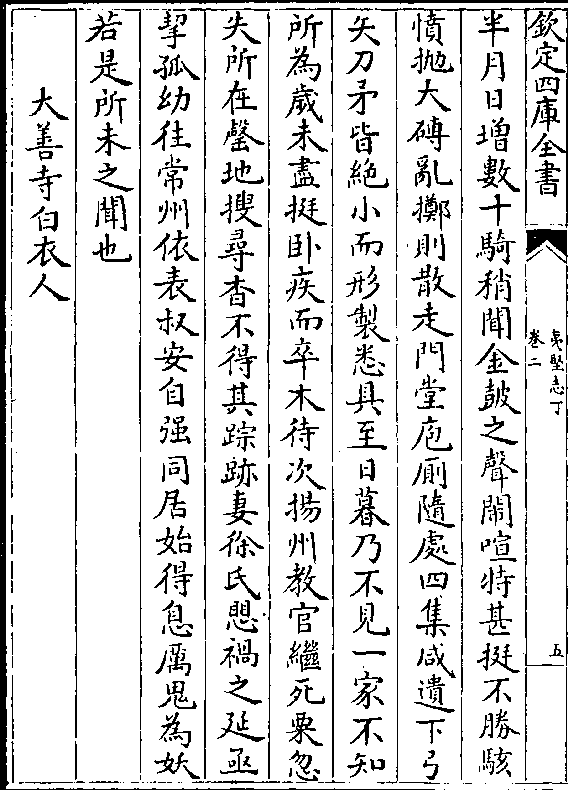 欽定四庫全書
夷堅志丁
卷二
五
半月日增數十騎稍聞金皷之聲鬧喧特甚挺不勝駭
憤抛大磚亂擲則散走門堂庖厠隨處四集咸遺下弓
矢刀矛皆絶小而形製悉具至日暮乃不見一家不知
所為歲未盡挺卧疾而卒木待次揚州教官繼死栗忽
失所在罄地搜尋杳不得其踪跡妻徐氏愳禍之延亟
挈孤幼往常州依表叔安自强同居始得息厲鬼為妖
若是所未之聞也
大善寺白衣人